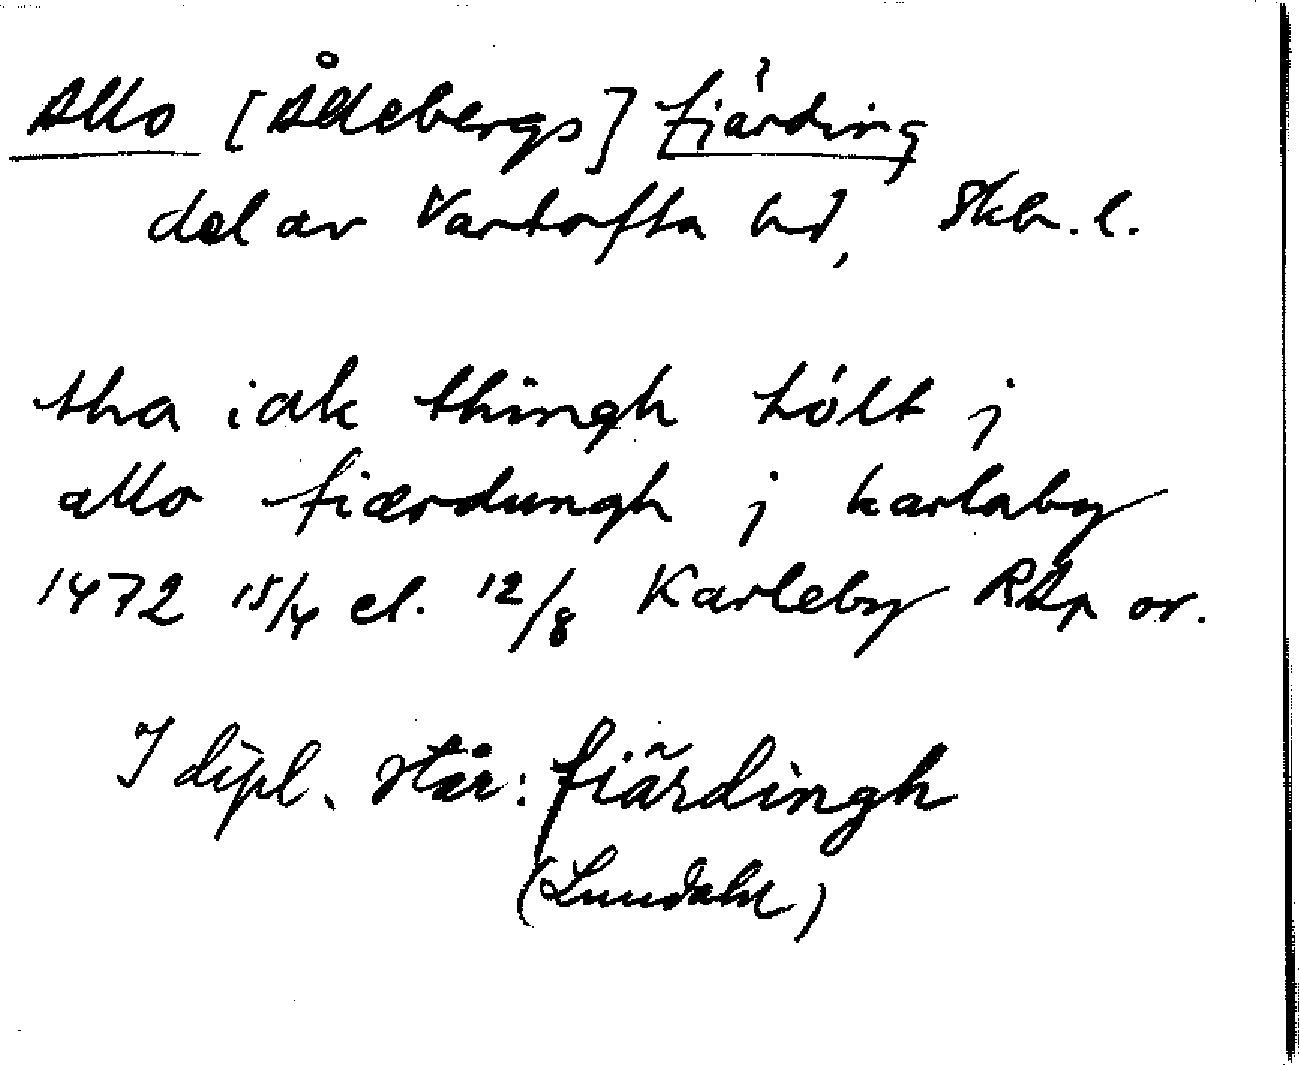 Allo [Ållebergs] fjärding
del av Vartofta hd, Skb. l.
tha iak thingh hölt j
allo fiærdungh j karlaby
1472 15/4 el. 12/8 Karleby RAp or.
I dipl. står: fiärdingh
(Lundahl)